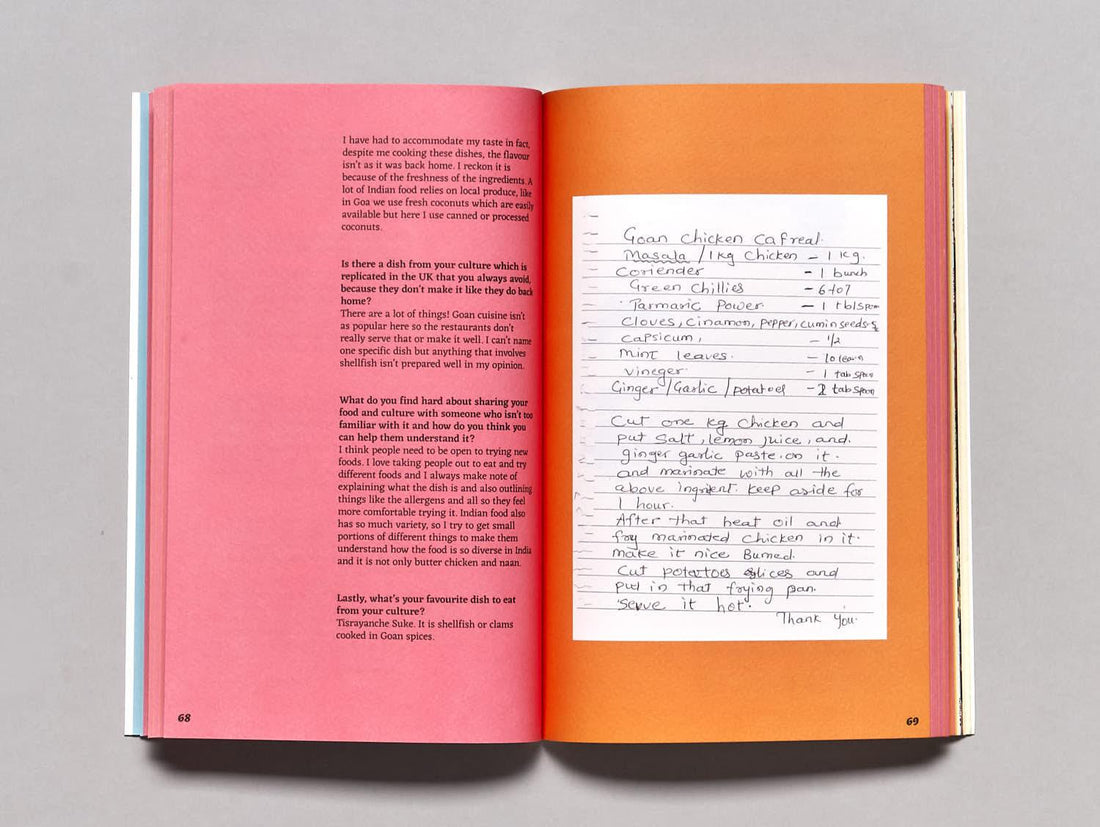 I have had to accommodate my taste in fact,
despite me cooking these dishes, the flavour
isn't as it was back home. I reckon it is
because of the freshness of the ingredients. A
lot of Indian food relies on local produce, like
in Goa we use fresh coconuts which are easily
available but here I use canned or processed
coconuts.
Is there a dish from your culture which is
replicated in the UK that you always avoid,
because they don't make it like they do back
home?
There are a lot of things! Goan cuisine isn't
as popular here so the restaurants don't
really serve that or make it well. I can't name
one specific dish but anything that involves
shellfish isn't prepared well in my opinion.
What do you find hard about sharing your
food and culture with someone who isn't too
familiar with it and how do you think you
can help them understand it?
I think people need to be open to trying new
foods. I love taking people out to eat and try
different foods and I always make note of
explaining what the dish is and also outlining
things like the allergens and all so they feel
more comfortable trying it. Indian food also
has so much variety, so I try to get small
portions of different things to make them
understand how the food is so diverse in India
and it is not only butter chicken and naan.
Lastly, what's your favourite dish to eat
from your culture?
Tisrayanche Suke. It is shellfish or clams
cooked in Goan spices.
68
Goan Chicken Cafreal.
Masala / 1 kg Chicken – 1 kg.
Coriender – 1 bunch
Green Chillies – 6 to 7
Tarmaric Power – 1 tblspon
Cloves, Cinamon, pepper, cumin seeds
Capsicum, – 1/2
Mint leaves. – 10 leaves
vineger – 1 tab spon
Ginger / Garlic / potatoes – 2 tab spoon
Cut one kg Chicken and
put Salt, lemon juice, and.
ginger garlic paste on it.
and marinate with all the
above ingrient. keep aside for
1 hour.
After that heat oil and
fry marinated chicken in it.
make it nice Burned.
Cut potatoes slices and
put in that frying pan.
Serve it hot.
Thank you.
69